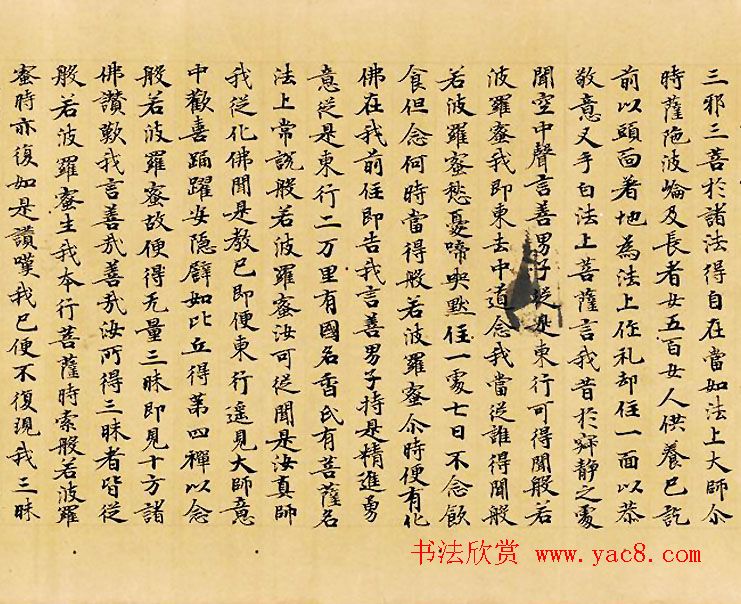 三邪三菩於諸法得自在當如法上大師尒
時薩陁波崘及長者女五百女人供養已訖
前以頭面着地為法上作礼却住一面以恭
敬意叉手白法上菩薩言我昔於寂静之處
聞空中聲言善男子從是東行可得聞般若
波羅蜜我即東去中道念我當從誰得聞般
若波羅蜜愁憂啼哭默住一處七日不念飲
食但念何時當得般若波羅蜜尒時便有化
佛在我前住即告我言善男子持是精進勇
意從是東行二万里有國名香氏有菩薩名
法上常說般若波羅蜜汝可從聞是汝真師
我從化佛聞是教已即便東行遥見大師意
中歡喜踊躍安隱譬如比丘得第四禪以念
般若波羅蜜故便得无量三昧即見十方諸
佛讃歎我言善㢤善㢤汝所得三昧者皆從
般若波羅蜜生我本行菩薩時索般若波羅
蜜時亦復如是讃嘆我已便不復現我三昧
书法欣赏 www.yac8.com